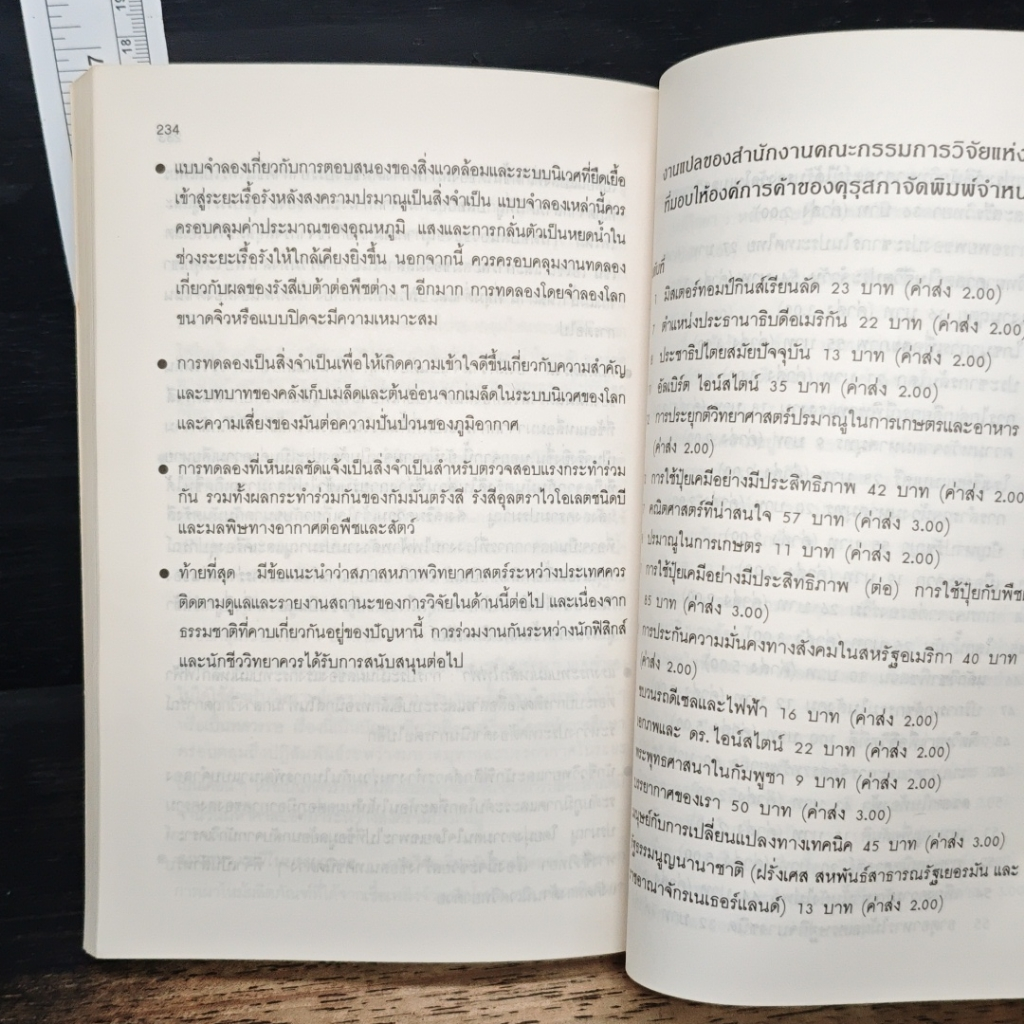 7
18
19
234
● แบบจำลองเกี่ยวกับการตอบสนองของสิ่งแวดล้อมและระบบนิเวศที่ยืดเยื้อ
เข้าสู่ระยะเรื้อรังหลังสงครามปรมาณูเป็นสิ่งจำเป็น แบบจำลองเหล่านี้ควร
ครอบคลุมค่าประมาณของอุณหภูมิ แสงและการกลั่นตัวเป็นหยดน้ำใน
ช่วงระยะเรื้อรังให้ใกล้เคียงยิ่งขึ้น นอกจากนี้ ควรครอบคลุมงานทดลอง
เกี่ยวกับผลของรังสีเบต้าต่อพืชต่าง ๆ อีกมาก การทดลองโดยจำลองโลก
ขนาดจิ๋วหรือแบบปิดจะมีความเหมาะสม
● การทดลองเป็นสิ่งจำเป็นเพื่อให้เกิดความเข้าใจดีขึ้นเกี่ยวกับความสำคัญ
และบทบาทของคลังเก็บเมล็ดและต้นอ่อนจากเมล็ดในระบบนิเวศของโลก
และความเสี่ยงของมันต่อความปั่นป่วนของภูมิอากาศ
● การทดลองที่เห็นผลชัดแจ้งเป็นสิ่งจำเป็นสำหรับตรวจสอบแรงกระทำร่วม
กัน รวมทั้งผลกระทำร่วมกันของกัมมันตรังสี รังสีอุลตราไวโอเลตชนิดบี
และมลพิษทางอากาศต่อพืชและสัตว์
● ท้ายที่สุด มีข้อแนะนำว่าสภาสหภาพวิทยาศาสตร์ระหว่างประเทศควร
ติดตามดูแลและรายงานสถานะของการวิจัยในด้านนี้ต่อไป และเนื่องจาก
ธรรมชาติที่คาบเกี่ยวกันอยู่ของปัญหานี้ การร่วมงานกันระหว่างนักฟิสิกส์
และนักชีววิทยาควรได้รับการสนับสนุนต่อไป
งานแปลของสำนักงานคณะกรรมการวิจัยแห่ง
ที่มอบให้องค์การค้าของคุรุสภาจัดพิมพ์จำหน
มิสเตอร์ทอมป์กินส์เรียนลัด 23 บาท (ค่าส่ง 2.00)
ตำแหน่งประธานาธิบดีอเมริกัน 22 บาท (ค่าส่ง 2.00)
ประชาธิปไตยสมัยปัจจุบัน 13 บาท (ค่าส่ง 2.00)
อัลเบิร์ต ไอน์สไตน์ 35 บาท (ค่าส่ง 2.00)
การประยุกต์วิทยาศาสตร์ปรมาณูในการเกษตรและอาหาร
(ค่าส่ง 2.00)
การใช้ปุ๋ยเคมีอย่างมีประสิทธิภาพ 42 บาท (ค่าส่ง 2.00
คณิตศาสตร์ที่น่าสนใจ 57 บาท (ค่าส่ง 3.00)
ปรมาณูในการเกษตร 11 บาท (ค่าส่ง 2.00)
การใช้ปุ๋ยเคมีอย่างมีประสิทธิภาพ (ต่อ) การใช้ปุ๋ยกับพืช
85 บาท (ค่าส่ง 3.00)
การประกันความมั่นคงทางสังคมในสหรัฐอเมริกา 40 บาท
(ค่าส่ง 2.00)
ขบวนรถดีเซลและไฟฟ้า 16 บาท (ค่าส่ง 2.00)
เอกภพและ ดร. ไอน์สไตน์ 22 บาท (ค่าส่ง 2.00)
พระพุทธศาสนาในกัมพูชา 9 บาท (ค่าส่ง 2.00)
บรรยากาศของเรา 50 บาท (ค่าส่ง 3.00)
มนุษย์กับการเปลี่ยนแปลงทางเทคนิค 45 บาท (ค่าส่ง 3.00)
รัฐธรรมนูญนานาชาติ (ฝรั่งเศส สหพันธ์สาธารณรัฐเยอรมัน และ
ราชอาณาจักรเนเธอร์แลนด์) 13 บาท (ค่าส่ง 2.00)